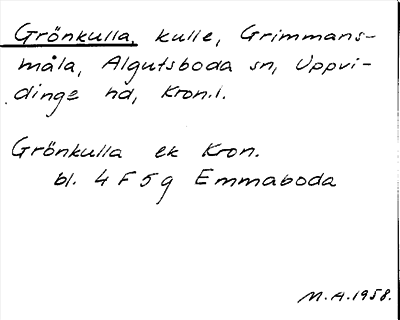 Grönkulla, kulle, Grimmans-
måla, Algutsboda sn, Uppvi-
dinge hd, Kron.l.
Grönkulla ek Kron.
bl. 4 F 5 g Emmaboda
M.A.1958.